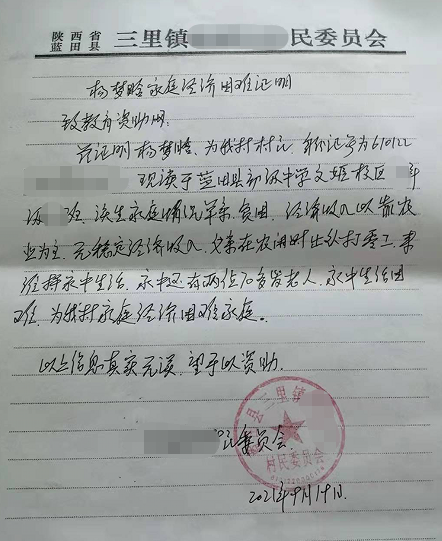 陕西省
蓝田县 三里镇 民委员会
杨梦晗家庭经济困难证明
致教育资助网:
兹证明杨梦晗,为我村村民,身份证号为610122
现读于蓝田县初级中学文姬校区 年
级 班,该生家庭情况单亲、贫困,经济收入以靠农
业为主,无稳定经济收入,父亲在农闲时出外打零工,来
维持家中生活,家中还有两位70多岁老人,家中生活困
难,为我村家庭经济困难家庭。
以上信息真实无误,望予以资助。
县三里镇
村民委员会
民委员会
2021年9月19日